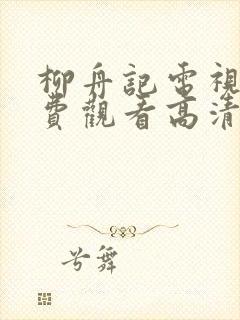 柳舟記電視
費觀看高清
兮舞